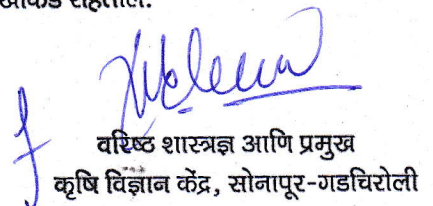 राहतील.
वरिष्ठ शास्त्रज्ञ आणि प्रमुख
कृषि विज्ञान केंद्र, सोनापूर-गडचिरोली